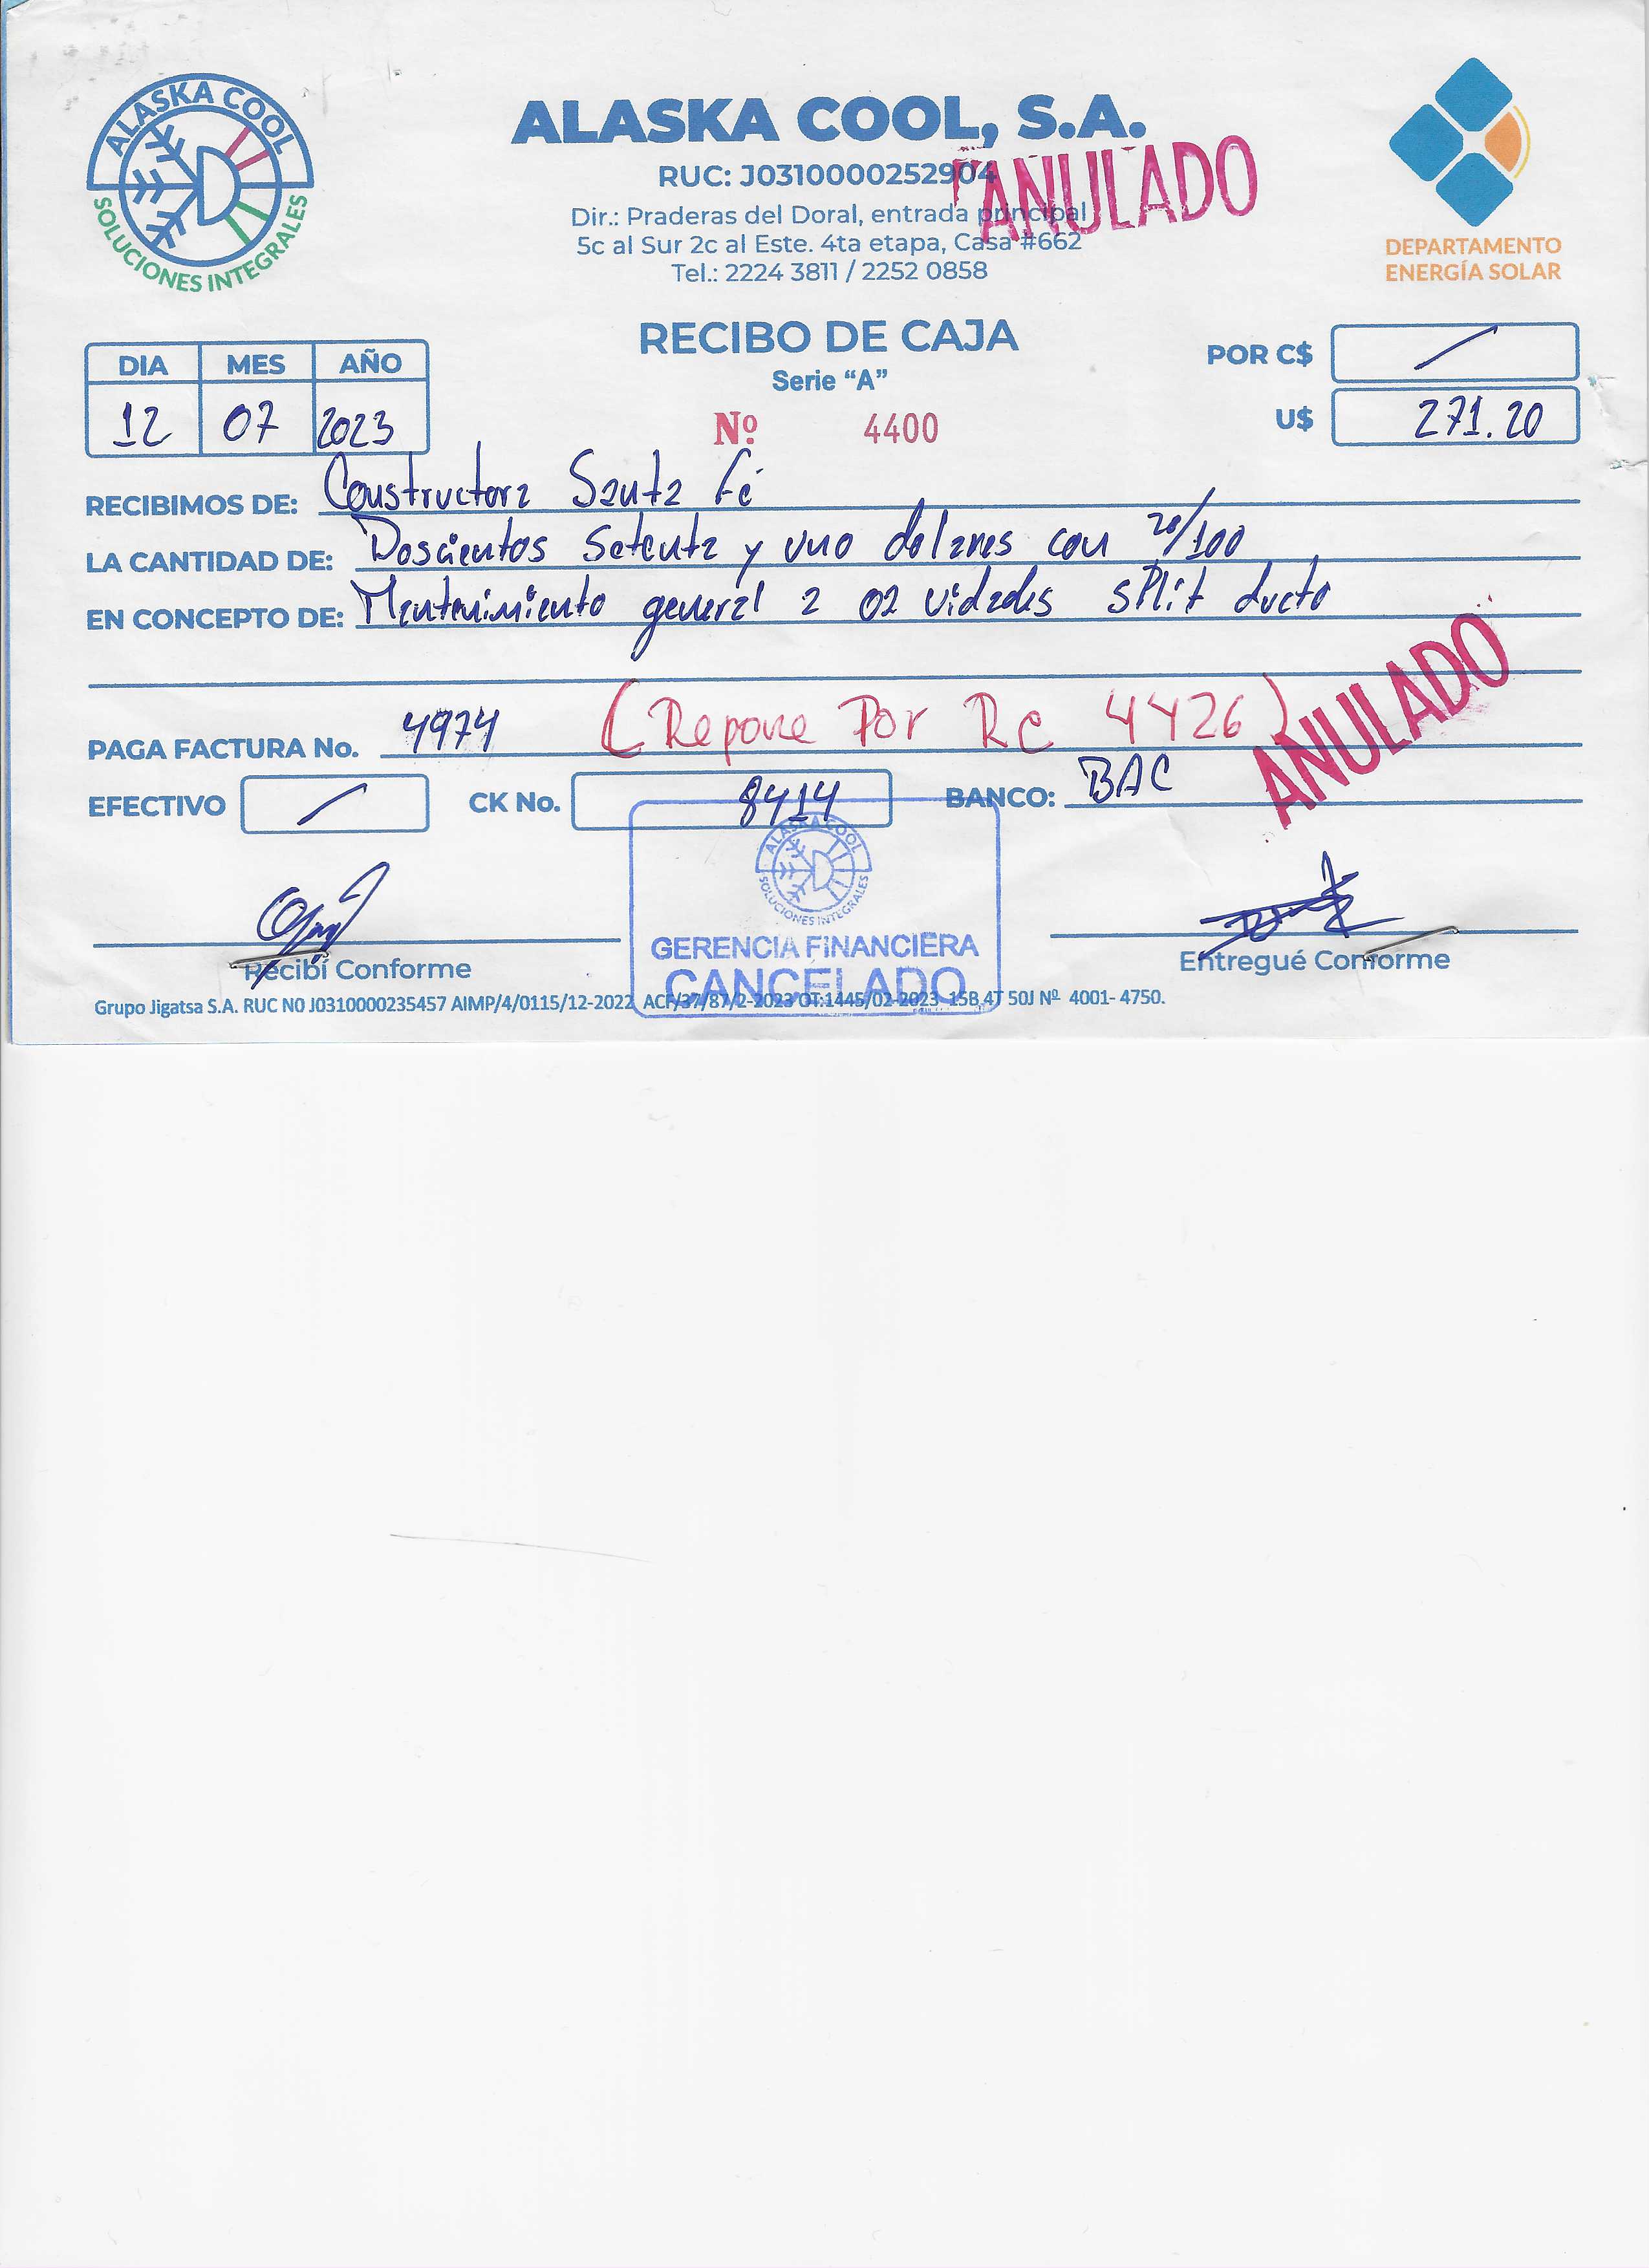 ALASKA COOL
SOLUCIONES INTEGRALES
ALASKA COOL, S.A.
RUC: J0310000252904
ANULADO
Dir.: Praderas del Doral, entrada principal
5c al Sur 2c al Este. 4ta etapa, Casa #662
Tel.: 2224 3811 / 2252 0858
DEPARTAMENTO
ENERGÍA SOLAR
RECIBO DE CAJA
Serie “A”
Nº 4400
DIA MES AÑO
12 07 2023
POR C$ /
U$ 271.20
RECIBIMOS DE: Constructora Santa Fé
LA CANTIDAD DE: Doscientos Setenta y uno dolares con 20/100
EN CONCEPTO DE: Mantenimiento general a 02 uidades split ducto
PAGA FACTURA No. 4974 (Repone Por Rc 4426)
ANULADO
EFECTIVO / CK No. 8414 BANCO: BAC
ALASKA COOL
SOLUCIONES INTEGRALES
GERENCIA FINANCIERA
CANCELADO
Recibí Conforme
Entregué Conforme
Grupo Jigatsa S.A. RUC N0 J0310000235457 AIMP/4/0115/12-2022 ACF/37/87/2-2023 OT:1445/02-2023 15B 4T 50J Nº 4001- 4750.